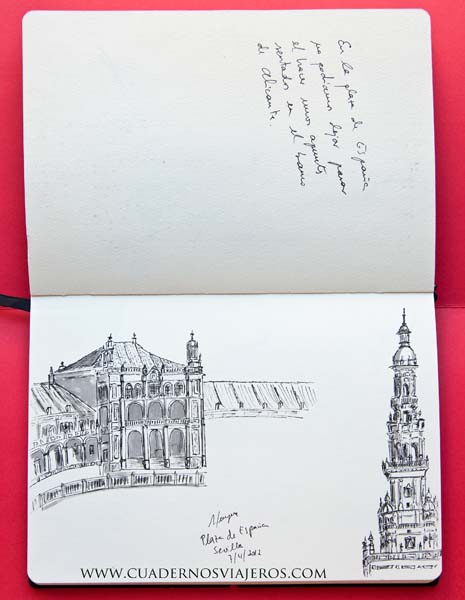 En la plaza de España
no podíamos dejar pasar
el hacer unos apuntes
sentados en el banco
de Alicante.
Plaza de España
Sevilla
7/4/2012
WWW.CUADERNOSVIAJEROS.COM